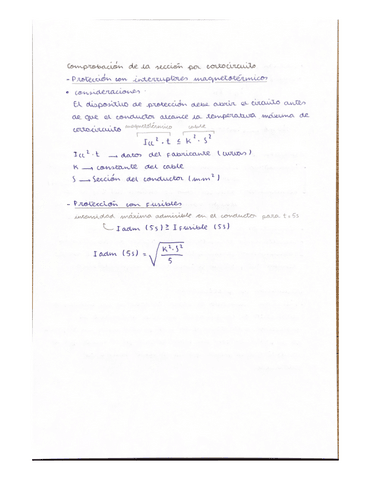 Comprobación de la sección por cortocircuito
- Protección con interruptores magnetotérmicos
• consideraciones:
El dispositivo de protección debe abrir el circuito antes
de que el conductor alcance la temperatura máxima de
cortocircuito
magnetotérmico cable
Icc² · t ≤ K² · S²
Icc² · t → datos del fabricante (curvas)
K → constante del cable
S → Sección del conductor (mm²)
- Protección con fusibles
intensidad máxima admisible en el conductor para t=5s
I adm (5s) ≥ I fusible (5s)
I adm (5s) = √(K² · S² / 5)